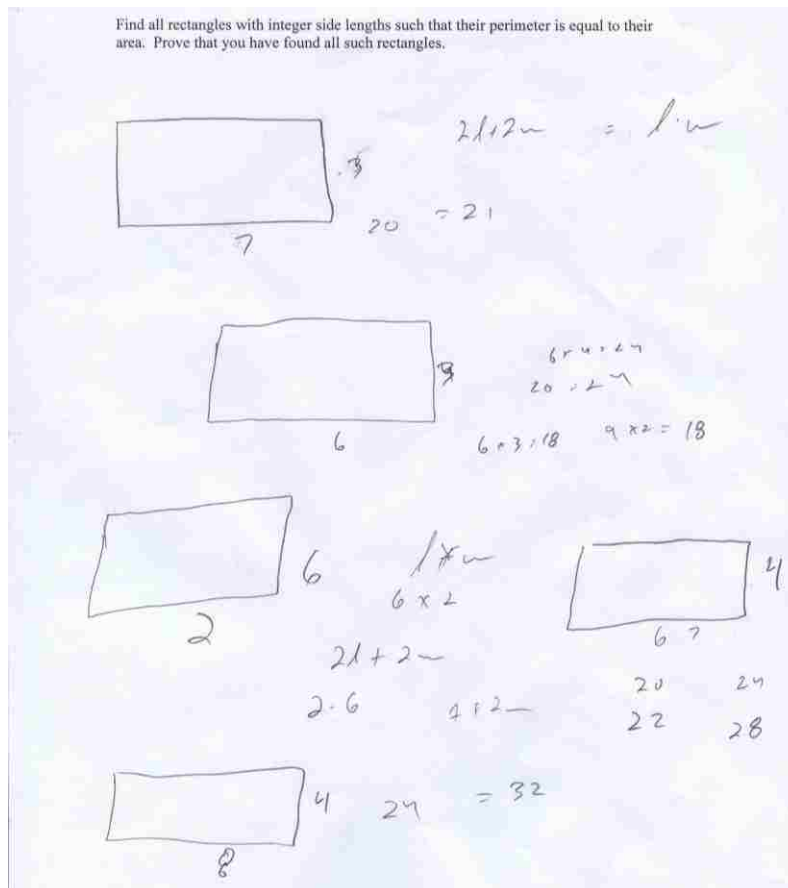 Find all rectangles with integer side lengths such that their perimeter is equal to their
area. Prove that you have found all such rectangles.
2l+2w = l·w
3
7
20 = 21
6×4=24
20 = 24
3
6
6×3=18 9×2=18
6
2
l×w
6×2
2l+2w
2·6
4
6 7
20 24
22 28
4
8
24 = 32